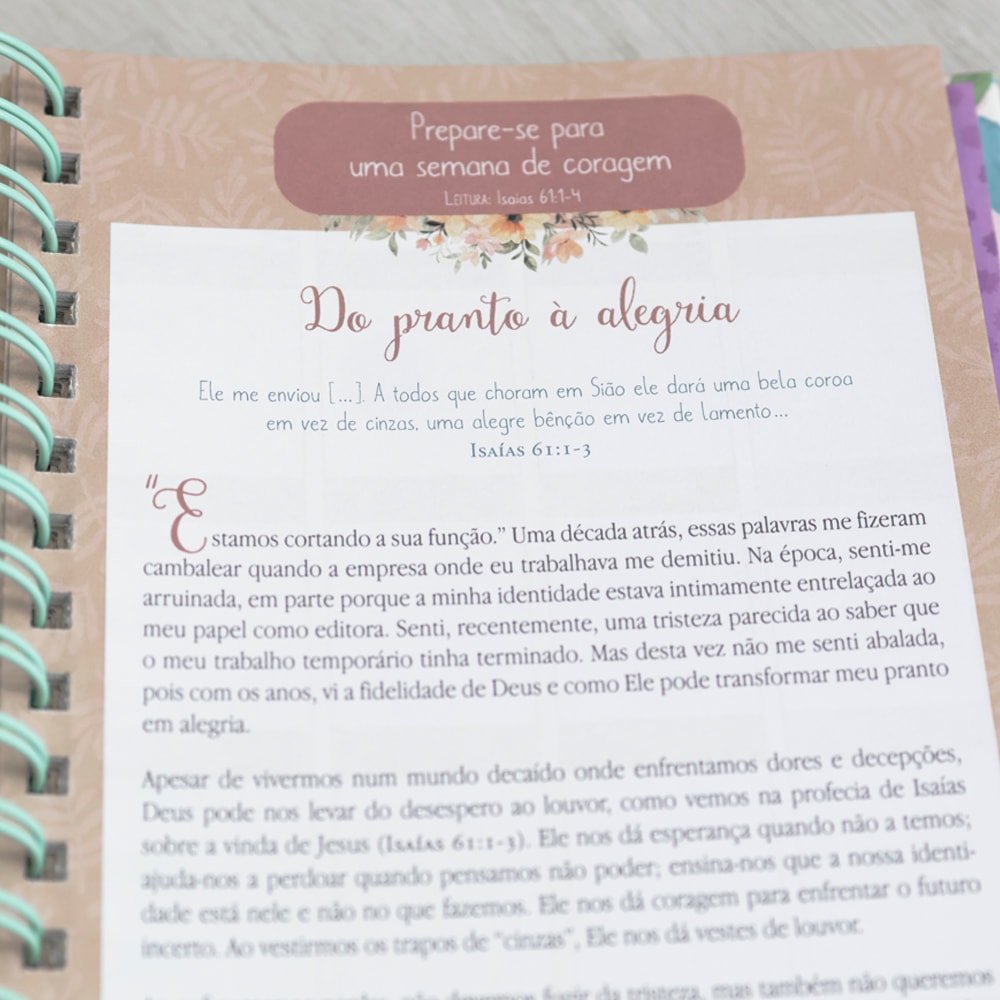 Prepare-se para
uma semana de coragem
LEITURA: Isaías 61:1-4
Do pranto à alegria
Ele me enviou [...]. A todos que choram em Sião ele dará uma bela coroa
em vez de cinzas, uma alegre bênção em vez de lamento...
ISAÍAS 61:1-3
"Estamos cortando a sua função." Uma década atrás, essas palavras me fizeram
cambalear quando a empresa onde eu trabalhava me demitiu. Na época, senti-me
arruinada, em parte porque a minha identidade estava intimamente entrelaçada ao
meu papel como editora. Senti, recentemente, uma tristeza parecida ao saber que
o meu trabalho temporário tinha terminado. Mas desta vez não me senti abalada,
pois com os anos, vi a fidelidade de Deus e como Ele pode transformar meu pranto
em alegria.
Apesar de vivermos num mundo decaído onde enfrentamos dores e decepções,
Deus pode nos levar do desespero ao louvor, como vemos na profecia de Isaías
sobre a vinda de Jesus (ISAÍAS 61:1-3). Ele nos dá esperança quando não a temos;
ajuda-nos a perdoar quando pensamos não poder; ensina-nos que a nossa identi-
dade está nele e não no que fazemos. Ele nos dá coragem para enfrentar o futuro
incerto. Ao vestirmos os trapos de "cinzas", Ele nos dá vestes de louvor.
da tristeza, mas também não queremos